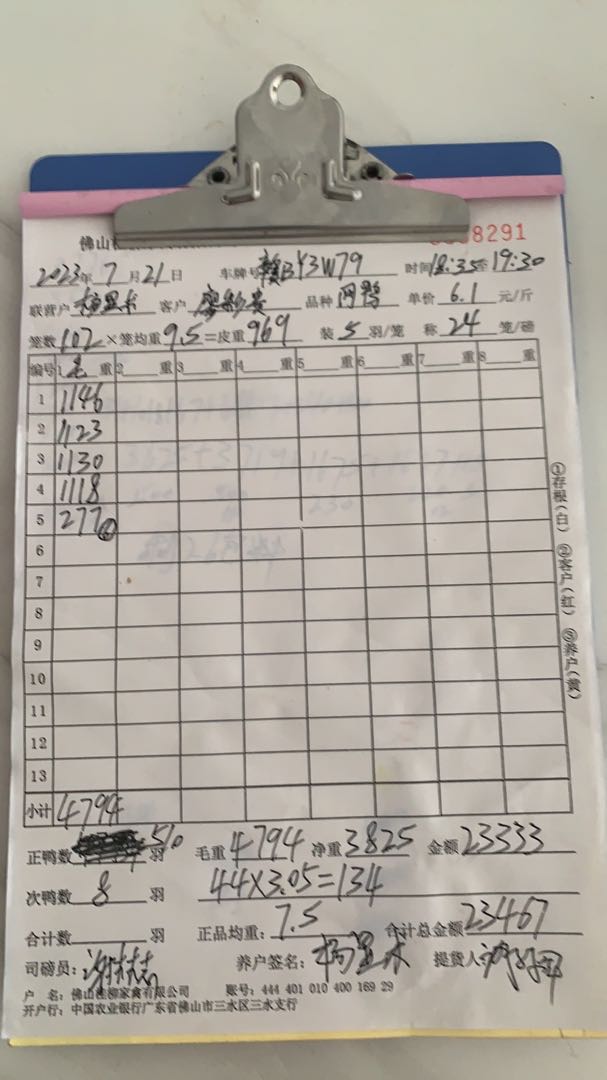 佛山
8291
2023年 7 月 21 日 车牌号 赣BY3W79 时间 18:35至19:30
联营户 客户 廖 品种 网鸭 单价 6.1 元/斤
笼数 102 ×笼均重 9.5 =皮重 969 装 5 羽/笼 称 24 笼/磅
编号 1 毛 重 2 重 3 重 4 重 5 重 6 重 7 重 8 重
1 1146
2 1123
3 1130
4 1118
5 277 ⑥
6
7
8
9
10
11
12
13
小计 4794
①存根(白) ②客户(红) ③养户(黄)
正鸭数 510 羽 毛重 4794 净重 3825 金额 23333
次鸭数 8 羽 44×3.05=134
合计数 羽 正品均重: 7.5 合计总金额 23467
司磅员: 养户签名: 提货人
户 名: 佛山桂柳家禽有限公司 账号: 444 401 010 400 169 29
开户行: 中国农业银行广东省佛山市三水区三水支行